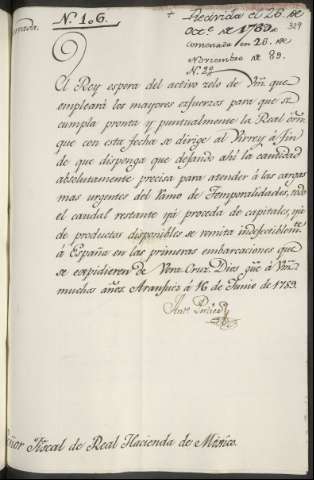 N.º 106.
+ Recivida el 26 de
Oct.e de 1789.
329
contestada en 28. de
Noviembre de 89.
N.º 22
El Rey espera del activo zelo de Vm. que
empleará los mayores esfuerzos para que se
cumpla pronta y puntualmente la Real orñ
que con esta fecha se dirige al Virrey á fin
de que disponga que dejando ahí la cantidad
absolutamente precisa para atender á las cargas
mas urgentes del Ramo de Temporalidades, todo
el caudal restante yá proceda de capitales, yá
de productos disponibles se remita indefectiblemte.
á España en las primeras embarcaciones que
se expidieren de Vera Cruz. Dios güe á Vm.
muchos años. Aranjuez á 16 de Junio de 1789.
Antº Porlier
Señor Fiscal de Real Hacienda de Mexico.